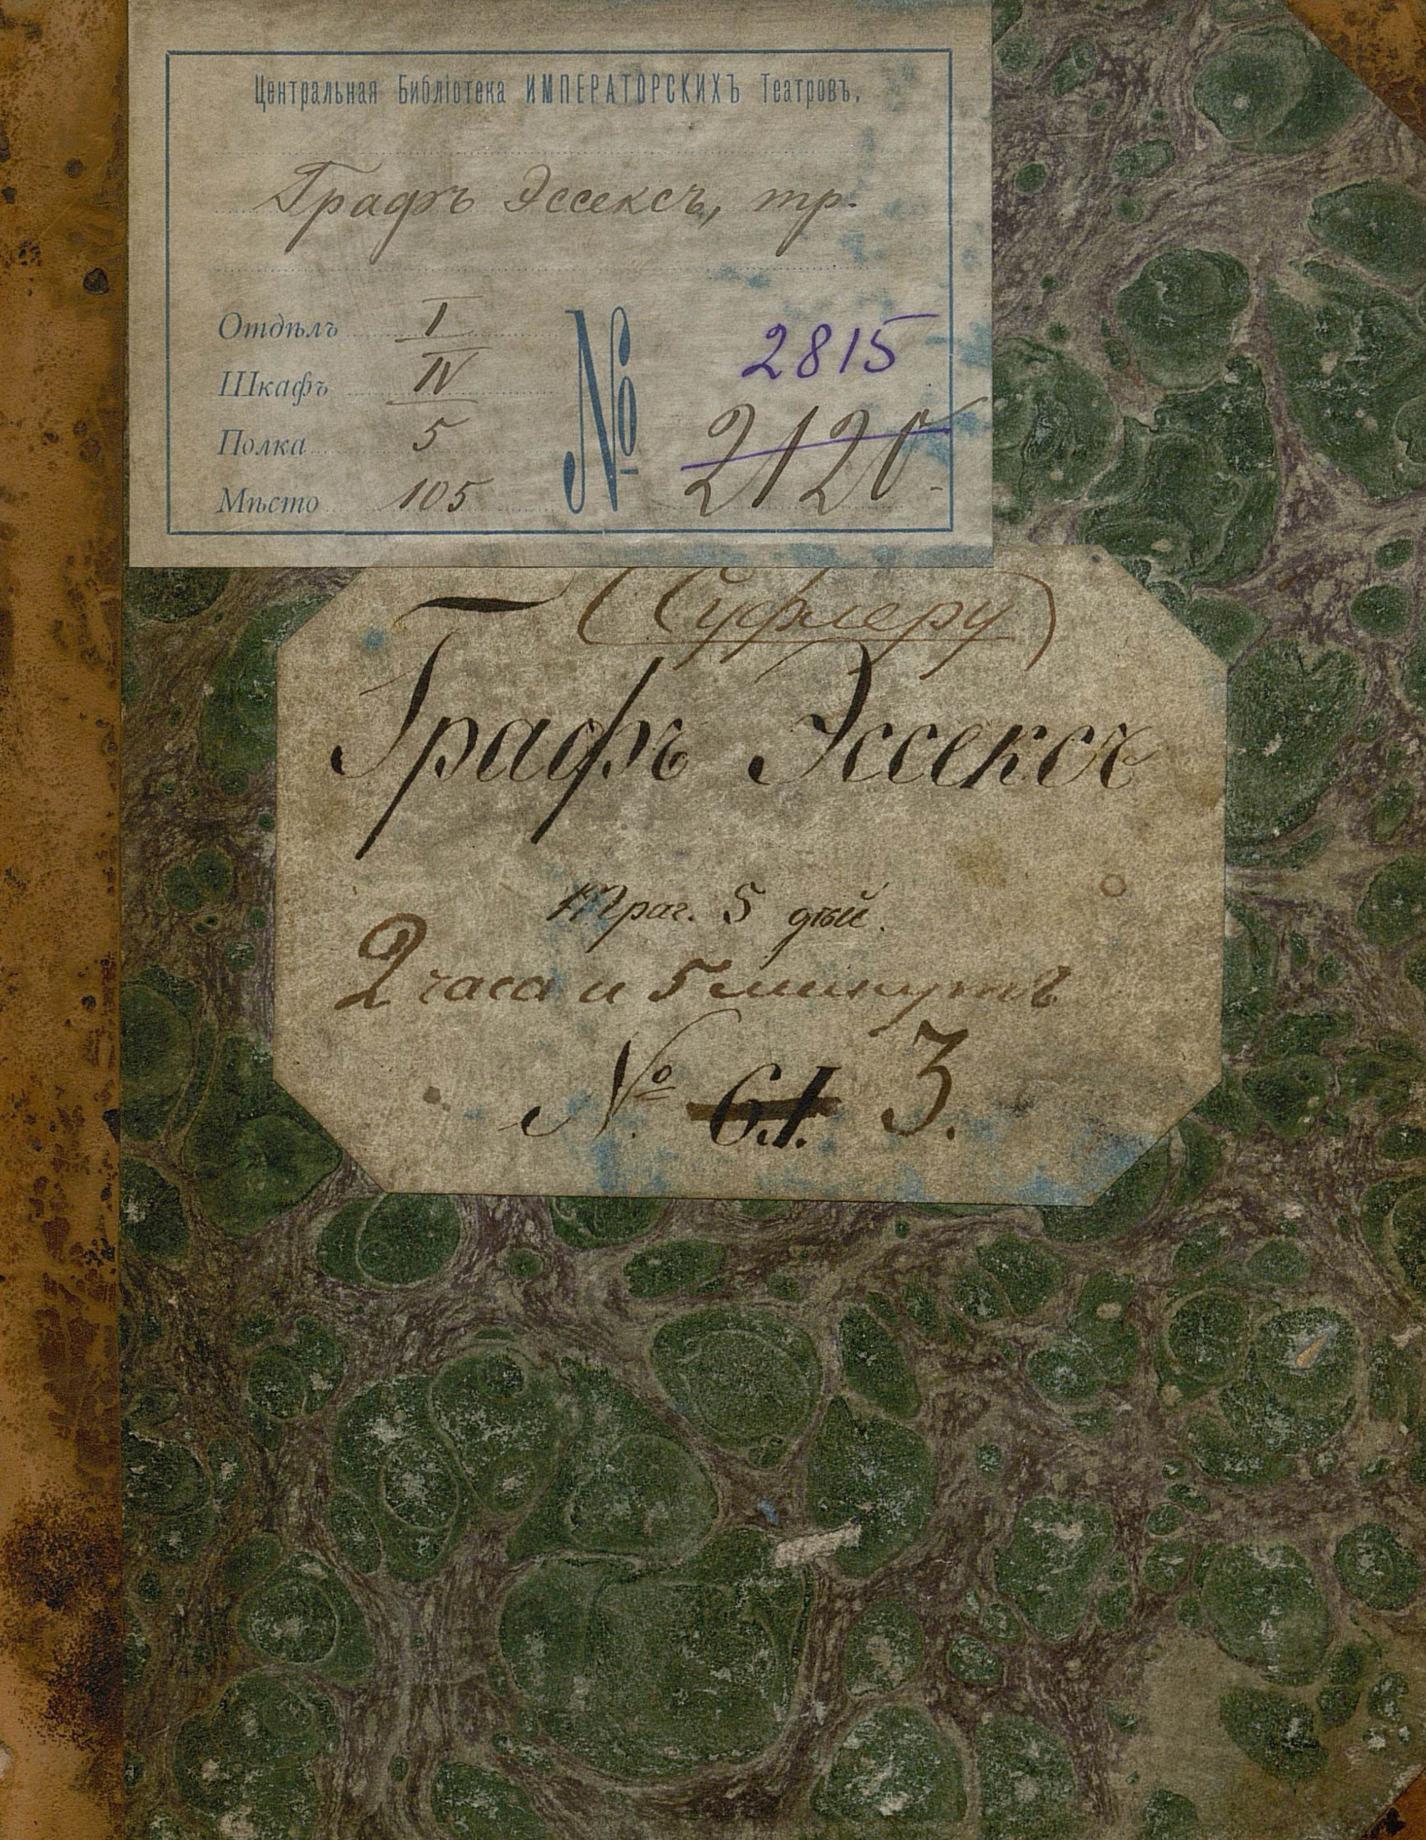 Центральная Библіотека ИМПЕРАТОРСКИХЪ Театровъ.
Графъ Эссексъ, тр.
Отдѣлъ I
Шкафъ IV
Полка 5
Мѣсто 105
№ 2815
2120
(Суфлеру)
Графъ Эссексъ
Траг. 5 дѣй.
2 часа и 5 минутъ
№ 61. 3.